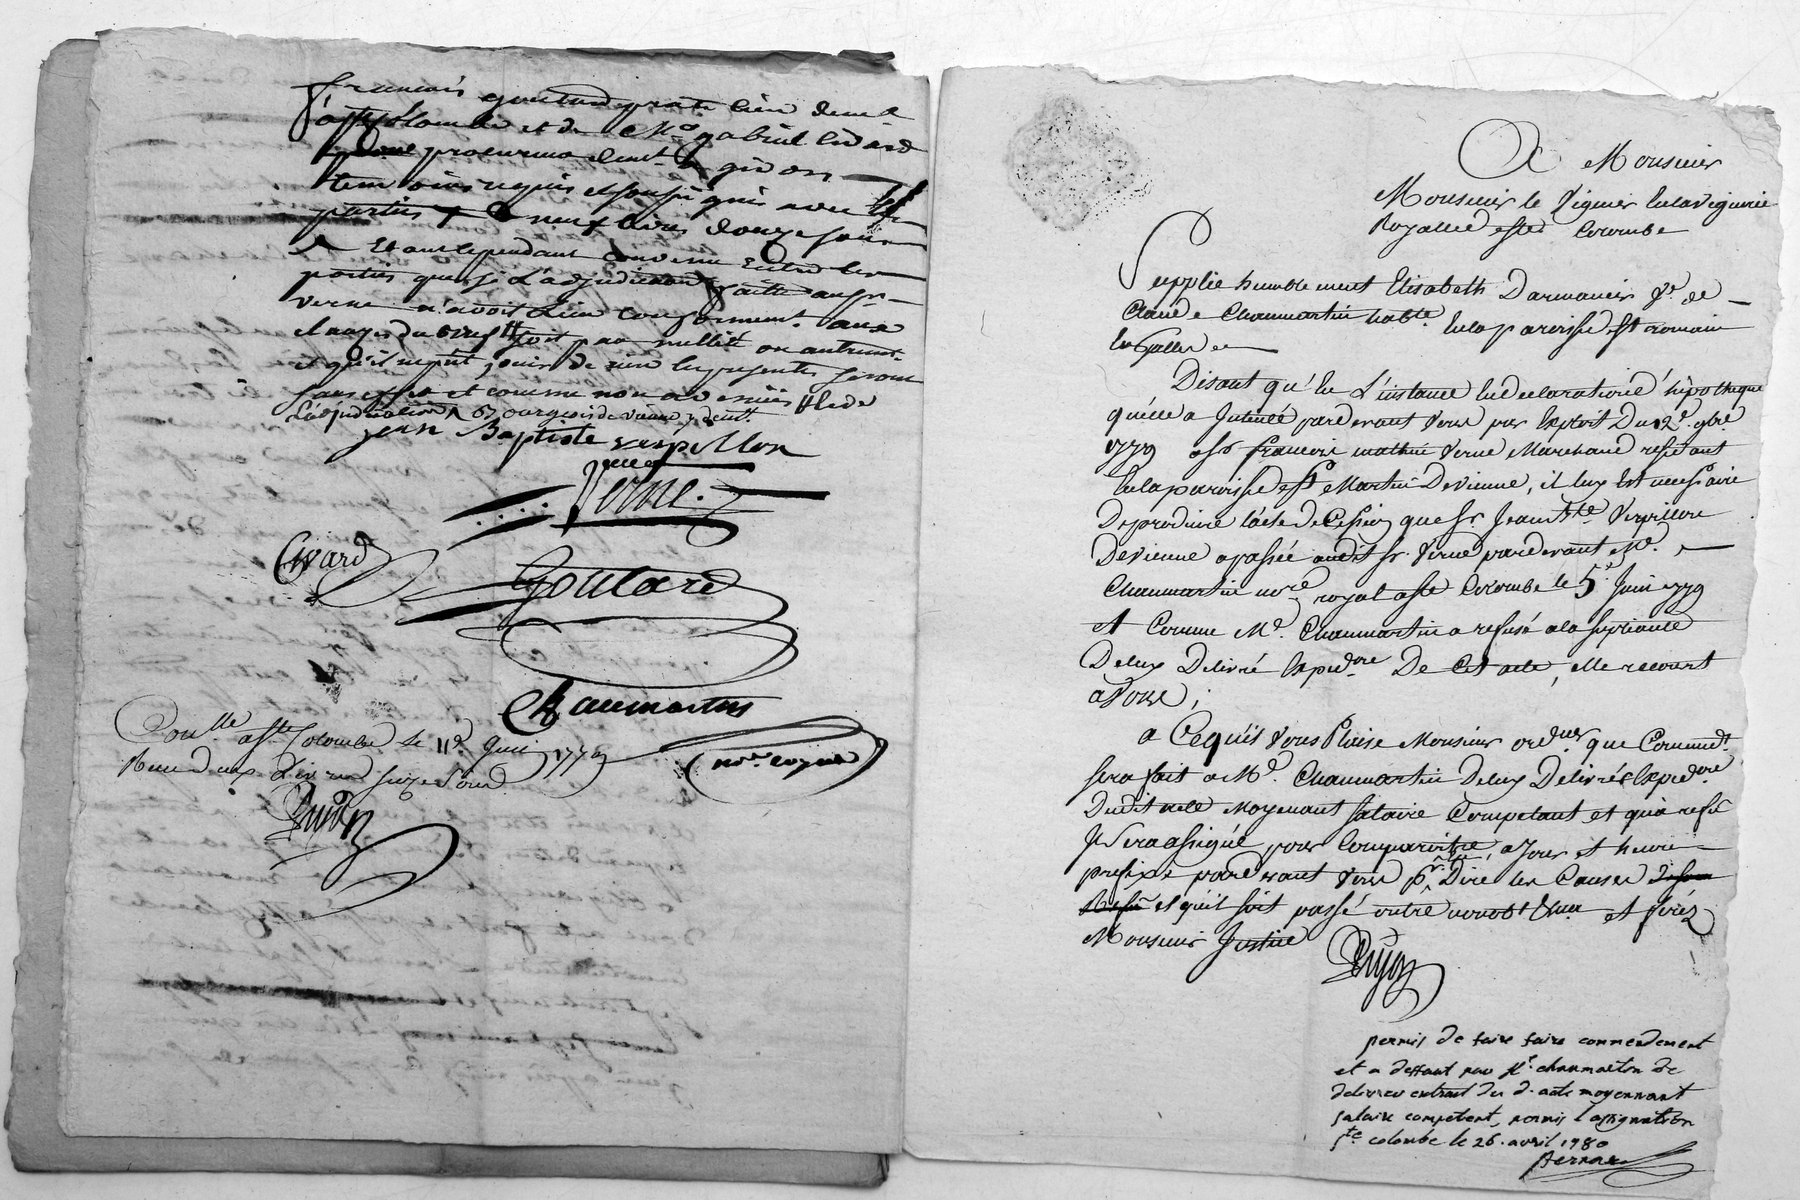 françois goutard praticien dem.t
a ste Colombe et de M.e gabriel Civard
procureur dem.t a givors
temoins requis et soussignés avec les
parties neuf livres douze sous
Et a cependant convenu entre les
parties que si l'adjudication faite aud. sr.
verne n'avoit lieu conformem.t aux
soit par nullité ou autrem.t
et qu'il ne put jouir de rien les presentes seront
sans effet et comme non avenues
L'adjudication bourgeois de vienne y dem.t
jean Baptiste verpillon
Verne.
Civard
Goutard
Chaumartin
no.re royal
Con.lle a ste Colombe le 11.e Juin 1779
Reçu deux Livres seize sous
Dujon
A Monsieur
Monsieur le Viguier en la viguerie
Royalle de ste Colombe
Supplie humblement Elisabeth Darmancier v.e de
Claude Chaumartin hab.te en la paroisse de st romain
en Galles
Disant qu'en L'instance en declaratoire d'hipotheque
qu'elle a Intenté pardevant vous par Exploit Du 12.e 9bre
1779 a sr. francois mathieu Verne Marchand residant
en la paroisse de st Martin De vienne, il lui Est necessaire
De produire l'acte de Cession que sr. Jean B.te Verpillon
De vienne a passée audit sr. Verne pardevant M.e
Chaumartin no.re royal a ste Colombe le 5.e Juin 1779
et Comme M.e Chaumartin a refusé a la supliante
De lui Delivré Expedi.on De Cet acte, elle recourt
a Vous,
a Ce qu'il Vous Plaise Monsieur ordonner que Commend.t
sera fait a M.e Chaumartin De lui Delivré Expedi.on
Dudit acte Moyenant salaire Competant et qu'a refus
Il sera assigné pour Comparoitre, a Jour et heure
prefixe pardevant Vous pr. Dire les Causes de son
Refus et qu'il soit passé outre nonobt. et ferés
Monsieur Justice
Dujon
permis de faire faire commendement
et a deffaut par Me. chaumarton de
delivrer extrait du d. acte moyennant
salaire competent, permis l'assignation
ste colombe le 26. avril 1780